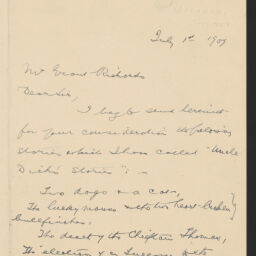 July 1st 1909
Mr Grant Richards
Dear Sir,
I beg to send herewith
for your consideration the following
stories which I have called "Uncle
Dick's Stories" : -
Two dogs & a cat,
The lucky mouse
bullfinches.
The desert & the Chieftain Thomas,
The election